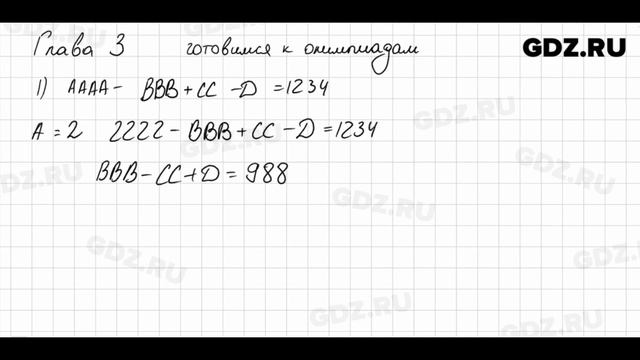 Глава 3 готовимся к олимпиадам
GDZ.RU
1) AAAA - BBB + CC - D = 1234
A = 2 2222 - BBB + CC - D = 1234
BBB - CC + D = 988
GDZ.RU
GDZ.RU
GDZ.RU
GDZ.RU
GDZ.RU
GDZ.RU
GDZ.RU